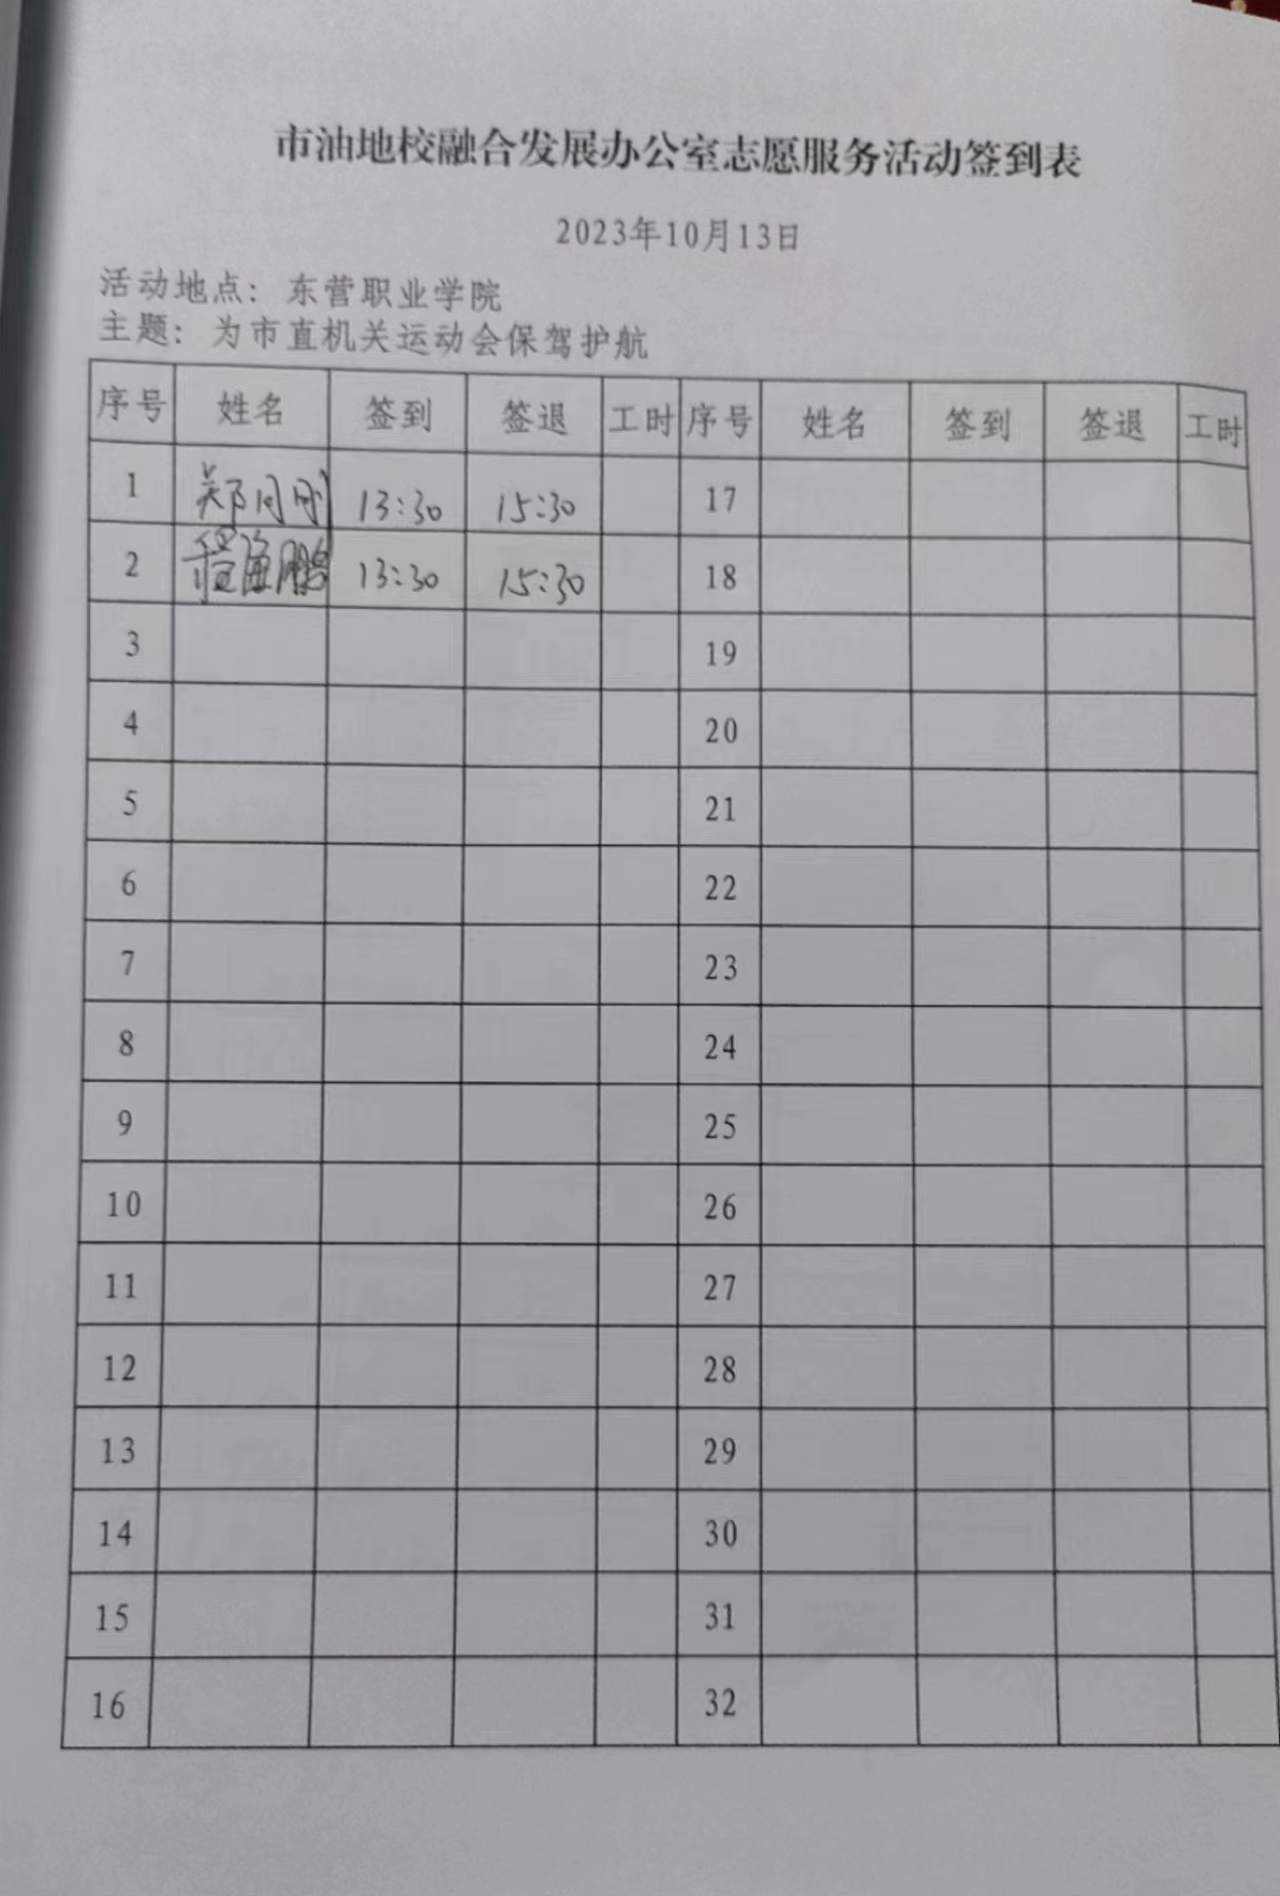 市油地校融合发展办公室志愿服务活动签到表
2023年10月13日
活动地点：东营职业学院
主题：为市直机关运动会保驾护航
序号 姓名 签到 签退 工时 序号 姓名 签到 签退 工时
1 郑同刚 13:30 15:30 17
2 程海鹏 13:30 15:30 18
3 19
4 20
5 21
6 22
7 23
8 24
9 25
10 26
11 27
12 28
13 29
14 30
15 31
16 32